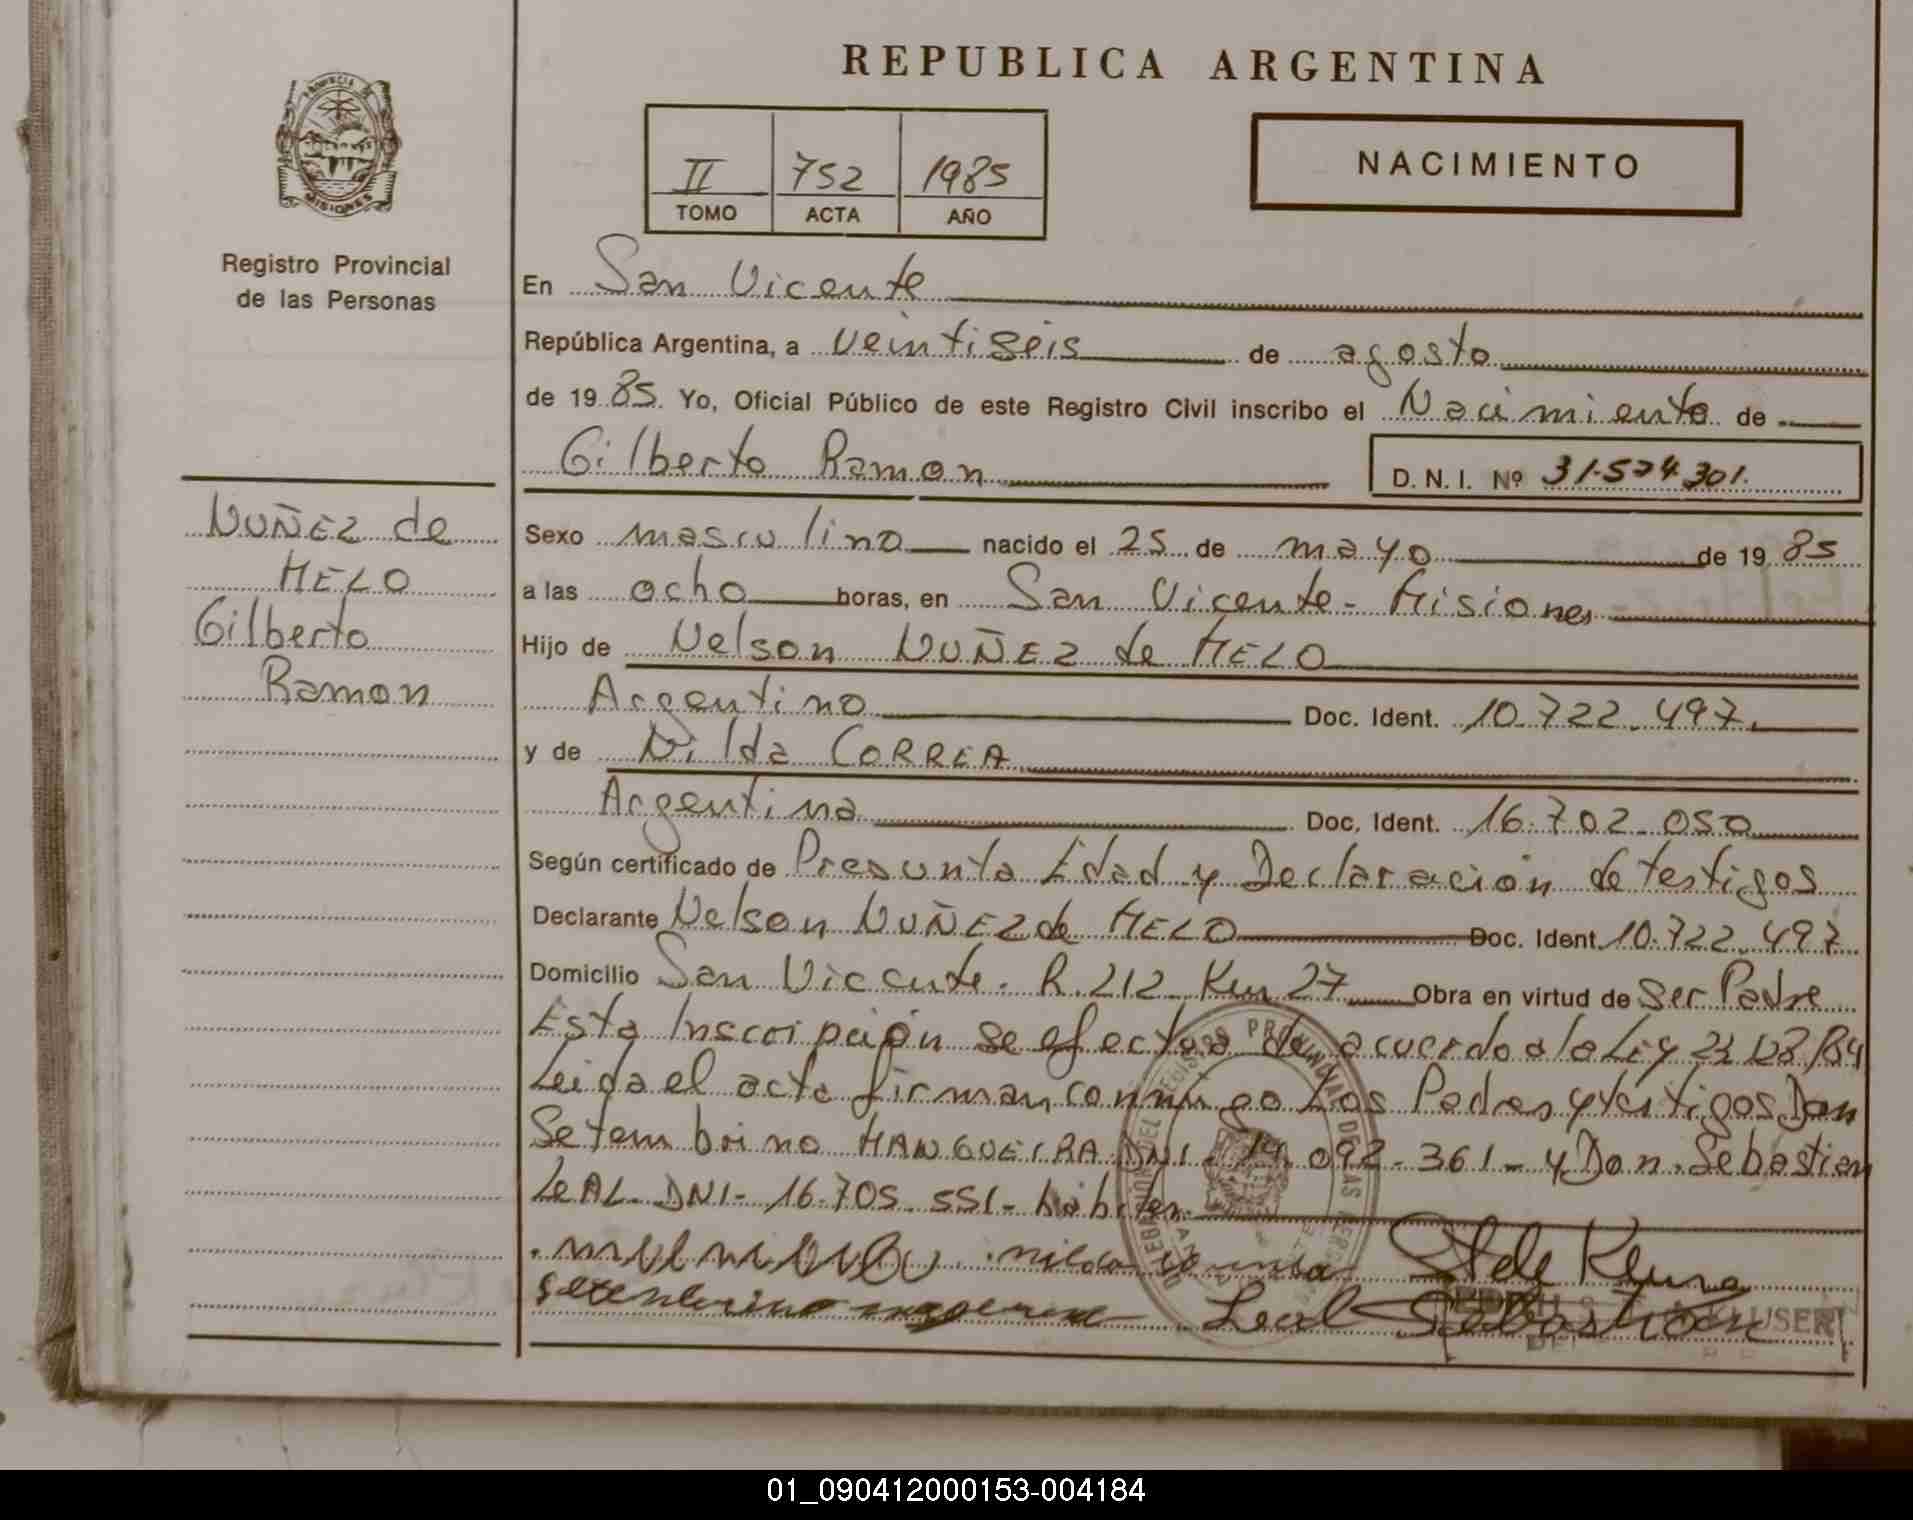 REPUBLICA ARGENTINA
PROVINCIA DE
MISIONES
II 752 1985
TOMO ACTA AÑO
NACIMIENTO
Registro Provincial
de las Personas
En San Vicente
República Argentina, a veintiseis de agosto
de 1985. Yo, Oficial Público de este Registro Civil inscribo el Nacimiento de
Gilberto Ramon
D. N. I. Nº 31.574.301.
NUÑEZ de
MELO
Gilberto
Ramon
Sexo masculino nacido el 25 de mayo de 1985
a las ocho horas, en San Vicente - Misiones
Hijo de Nelson NUÑEZ de MELO
Argentino Doc. Ident. 10.722.497.
y de Nilda CORREA
Argentina Doc. Ident. 16.702.050
Según certificado de Presunta Edad y Declaración de testigos
Declarante Nelson NUÑEZ de MELO Doc. Ident. 10.722.497
Domicilio San Vicente. R.212 Km 27 Obra en virtud de Ser Padre
Esta Inscripción se efectua de acuerdo a la Ley /84
Leida el acta firman conmigo Los Padres y testigos Don
Setembrino MANGUEIRA DNI- 14.092-361- y Don. Sebastian
LEAL DNI- 16.705.551- habiten
nilda
Leal Sebastian
KLUSENER
01_090412000153-004184